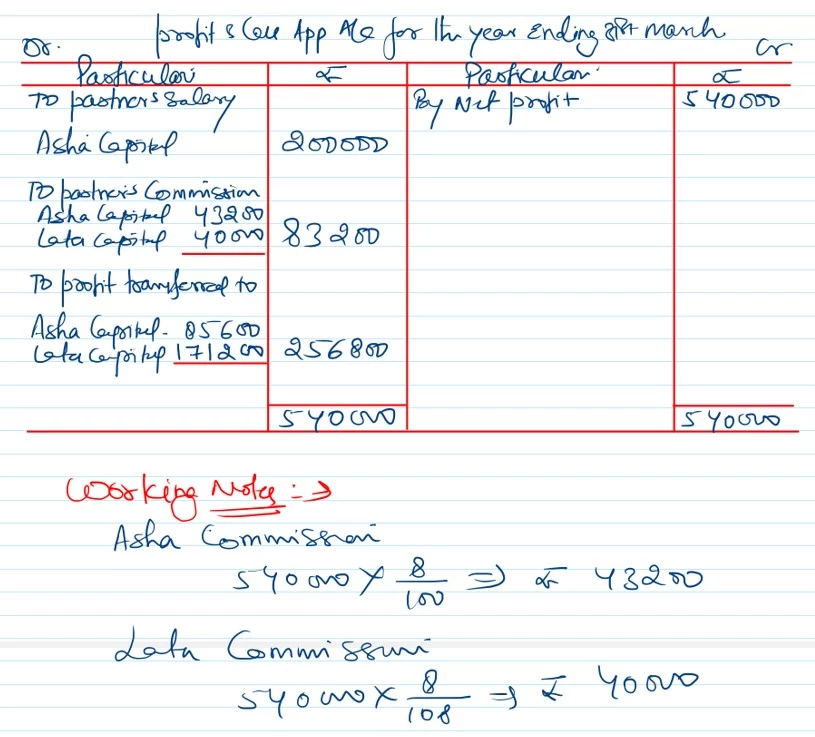 Profit & Loss App A/c for the year Ending 31st March
Dr. Cr
Particular ₹ Particular ₹
To partner's Salary By Net profit 540000
Asha Capital 200000
To partner's Commission
Asha Capital 43200
Lata Capital 40000 83200
To profit transferred to
Asha Capital - 85600
Lata Capital 171200 256800
540000 540000
Working Notes :→
Asha Commission
540000 × 8/100 ⇒ ₹ 43200
Lata Commission
540000 × 8/108 ⇒ ₹ 40000